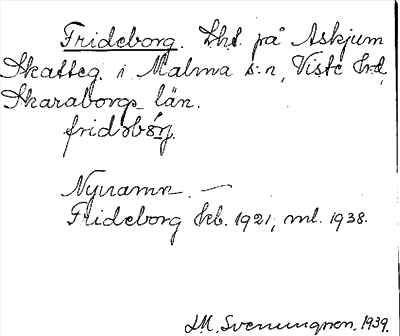 Frideborg. Lht. på Askjum
Skatteg. i Malma s:n, Viste hd,
Skaraborgs län.
fridəbórj.
Nynamn. —
Frideborg kb. 1921, ml. 1938.
J.M. Svennungson. 1939.